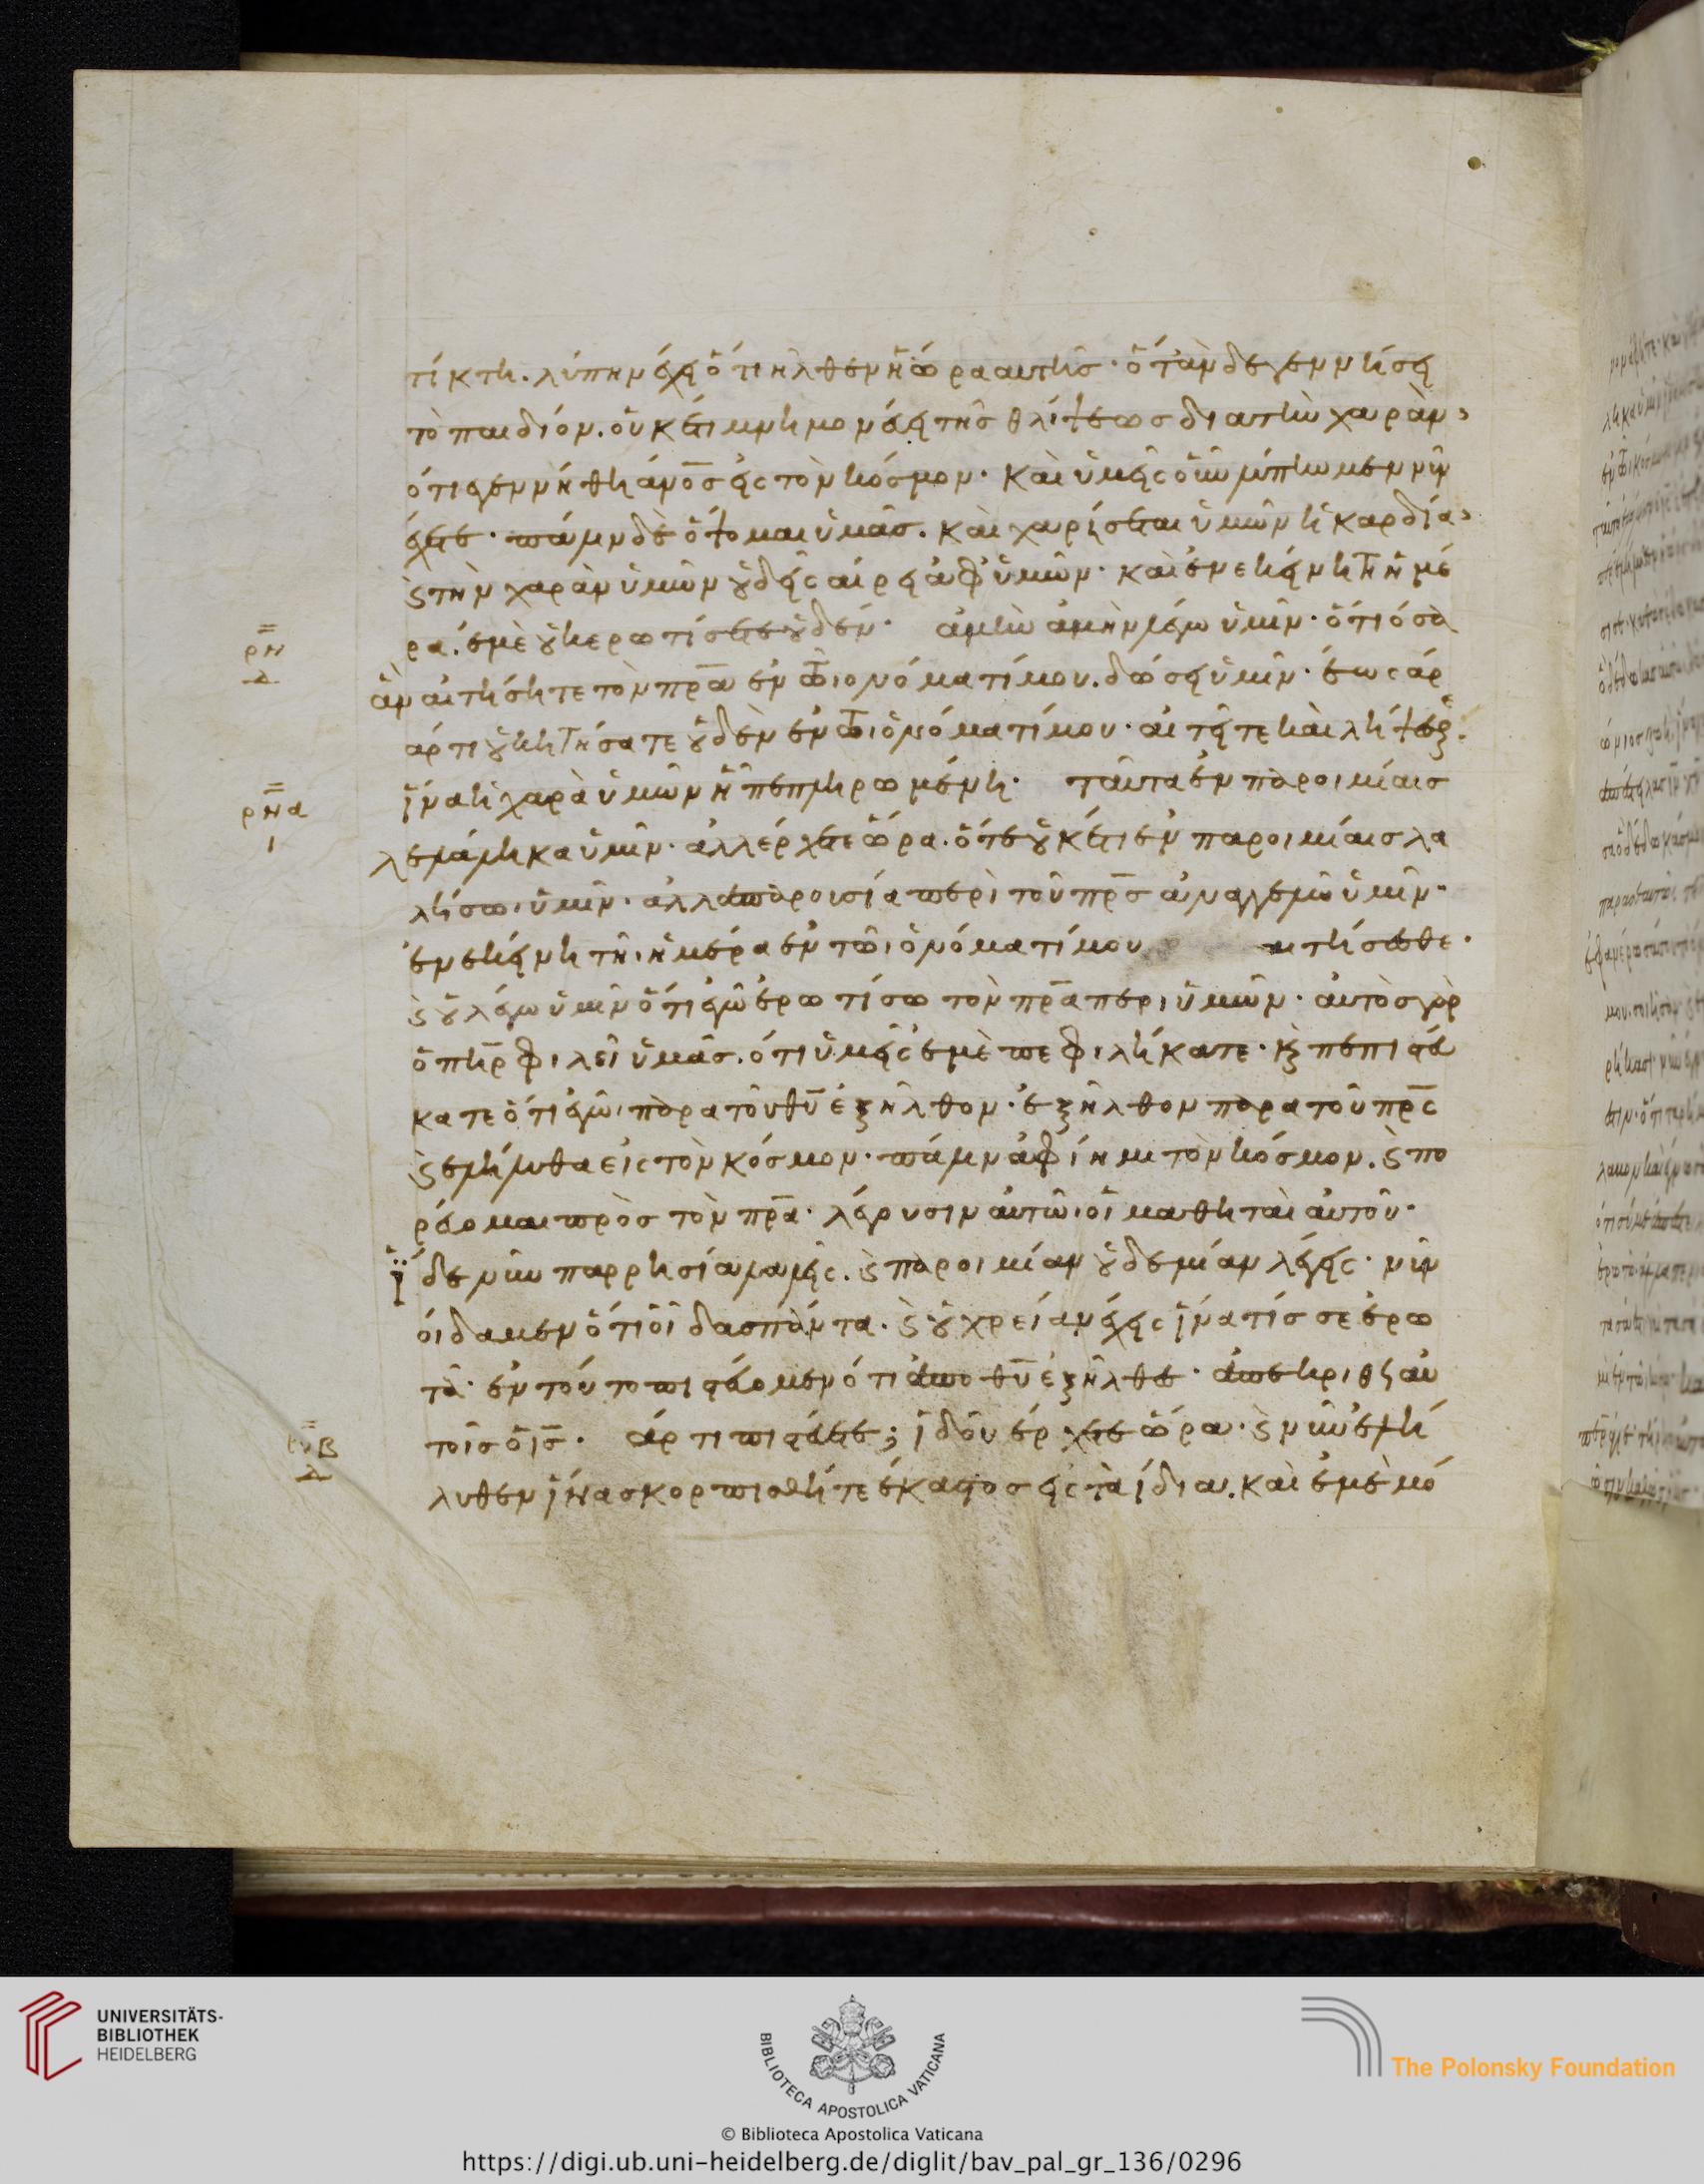 τίκτη. λύπην έχει ὅτι ἦλθεν ἡ ὥρα αυτῆς· ὅταν δε γεννήσει
τὸ παιδίον. οὐκέτι μνημονεύει τῆς θλίψεως δια τὴν χαρὰν,
ότι εγεννήθη ἄνο̅σ εἰς τὸν κόσμον· Καὶ ὑμεῖς οὖν λύπην μεν νῦν
έχετε· πάλιν δὲ ὄψομαι ὑμᾶς. καὶ χαρίσεται ὑμῶν ἡ καρδία,
ϛ τὴν χαρὰν ὑμῶν ȣδεὶς αίρει ἀφ' ὑμῶν· καὶ ἐν εκείνη τῆ ἡμέ
ρα. ἐμὲ ȣκ ερωτίσετε ȣδέν· ἀμὴν ἀμὴν λέγω ὑμῖν· ὅτι όσα
ἂν αιτήσητε τὸν πρ̅α ἐν τῶι ονόματί μου. δώσει ὑμῖν· έως άρ
αρτι ȣκ ητήσατε ȣδὲν ἐν τῶι ὀνόματί μου· αἰτεῖτε καὶ λήψεσθε.
ἵνα ἡ χαρὰ ὑμῶν ἦ πεπληρωμένη· ταῦτα ἐν παροιμίαις
λελάληκα ὑμῖν· ἀλλ έρχεται ὥρα. ὅτε ȣκέτι ἐν παροιμίαις λα
λήσω ὑμῖν· ἀλλα παροισία περὶ τοῦ πρ̅ς ἀναγγελῶ ὑμῖν·
ἐν εκείνη τῆι ἡμέρα ἐν τῶι ὀνόματί μου αιτήσασθε·
ϛ ȣ λέγω ὑμῖν ὅτι ἐγὼ ἐρωτίσω τὸν πρ̅α περι ὑμῶν· ἀυτὸς γὰρ
ὁ πη̅ρ φιλεῖ ὑμᾶς. ότι ὑμεῖς ἐμὲ πεφιλήκατε· κ̀ πεπιστεύ
κατε ὅτι ἐγὼ παρα τοῦ θυ̅ ἐξῆλθον· ἐξῆλθον παρα τοῦ πρ̅ς
ϛ ελήλυθα εἰς τὸν κόσμον· πάλιν ἀφίημι τὸν κόσμον. ϛ πο
ρέυομαι πρὸς τὸν πρ̅α· λέγουσιν αὐτῶι οἱ μαθηταὶ αὐτοῦ·
ἴδε νῦν παρρησία λαλεῖς. ϛ παροιμίαν ȣδεμίαν λέγεις· νῦν
όιδαμεν ὅτι οἶδας πάντα. ϛ ȣ χρείαν έχεις ἵνα τίς σε ἐρω
τᾶ· ἐν τούτο πιστέυομεν ότι ἀπο θυ̅ ἐξῆλθες· ἀπεκρίθη αὐ
τοῖς ὁ ις̅· άρτι πιστέυετε; ἰδοὺ ἐρχεται ὥρα· ϛ νῦν ἐλή
λυθεν ἵνα σκορπισθῆτε έκαστος εἰς τὰ ίδια. καὶ ἐμὲ μό
ρν
δ
ρνα
ι
ρνβ
δ
UNIVERSITÄTS-
BIBLIOTHEK
HEIDELBERG
BIBLIOTECA APOSTOLICA VATICANA
The Polonsky Foundation
© Biblioteca Apostolica Vaticana
https://digi.ub.uni-heidelberg.de/diglit/bav_pal_gr_136/0296